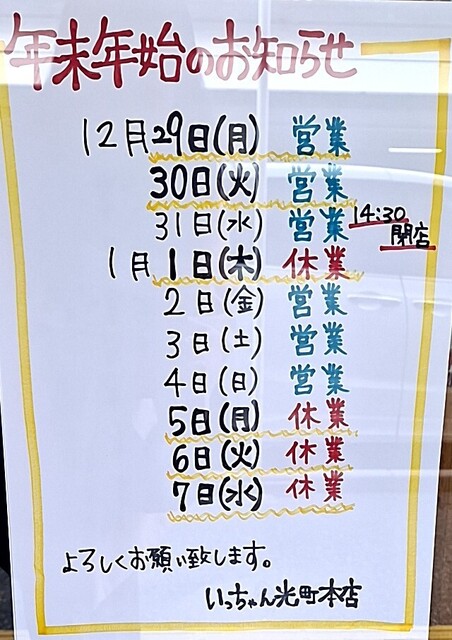 年末年始のお知らせ
12月29日(月) 営業
30日(火) 営業
31日(水) 営業 14:30閉店
1月1日(木) 休業
2日(金) 営業
3日(土) 営業
4日(日) 営業
5日(月) 休業
6日(火) 休業
7日(水) 休業
よろしくお願い致します。
いっちゃん光町本店